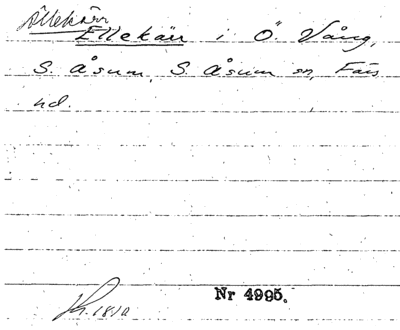 Ällekärr
Ellekärr i Ö. Vång,
S. Åsum, S. Åsum sn, Färs
hd.
Nr 4995.